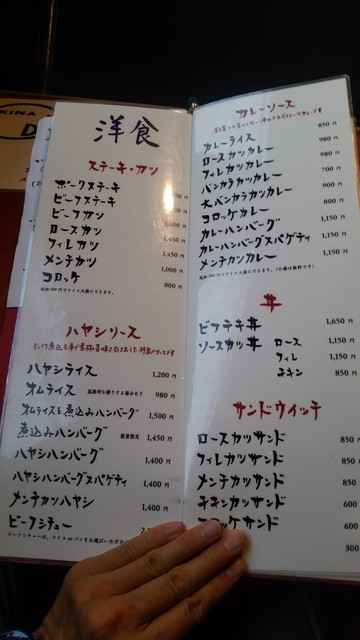 洋食
ステーキ・カツ
ポークステーキ
ビーフステーキ
ビーフカツ
ロースカツ 1,450円
フィレカツ 1,450円
メンチカツ 1,000円
コロッケ 800円
ハヤシソース
ハヤシライス 1,200円
オムライス 980円
オムライスと煮込みハンバーグ 1,500円
煮込みハンバーグ 数量限定 1,450円
ハヤシハンバーグ 1,400円
ハヤシハンバーグスパゲティ 1,400円
メンチカツハヤシ 1,400円
ビーフシチュー
ビーフシチューは、ライス or パンをお選びいただけ
カレーソース
カレーライス 850円
ロースカツカレー 980円
フィレカツカレー 980円
バンカラカツカレー 700円
大バンカラカツカレー 900円
コロッケカレー 800円
カレーハンバーグ 1,150円
カレーハンバーグスパゲティ 1,150円
メンチカツカレー 1,150円
丼
ビフテキ丼 1,650円
ソースカツ丼 ロース 1,150円
フィレ 1,150円
チキン 850円
サンドウイッチ
ロースカツサンド 850
フィレカツサンド 850
メンチカツサンド 850
チキンカツサンド 600
コロッケサンド 600
300